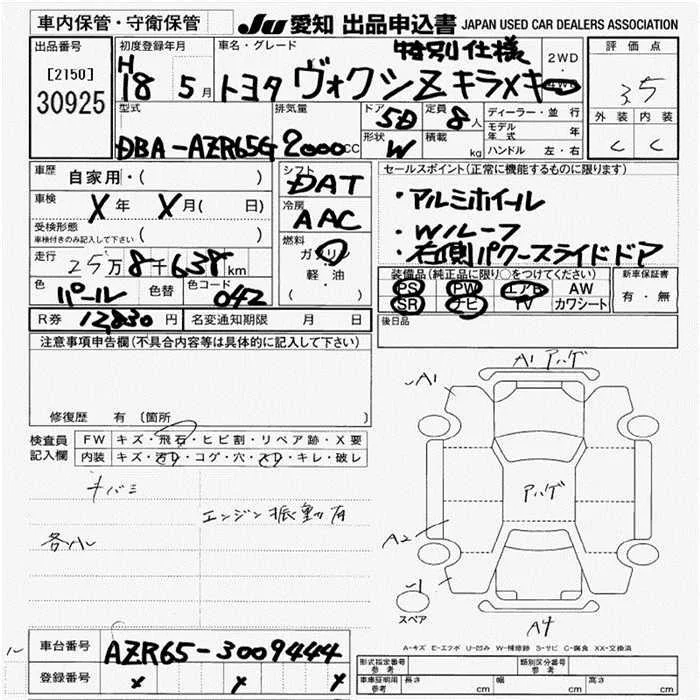 車内保管・守衛保管
JU 愛知 出品申込書 JAPAN USED CAR DEALERS ASSOCIATION
出品番号
[2150]
30925
初度登録年月
H
18 5月
車名・グレード
特別仕様
トヨタ ヴォクシZキラメキ
2WD
・
4WD
評価点
3.5
外装 内装
C C
型式
DBA-AZR65G
排気量
2000cc
ドア
5D
定員
8人
形状
W
積載
kg
ディーラー・並行
モデル年式 年
ハンドル 左・右
車歴
自家用・( )
車検
X年 X月( 日)
受検形態
車検付きのみ記入して下さい ( )
走行
25万8千638km
色
パール
色替
色コード
042
シフト
DAT
冷房
AAC
燃料
ガソリン
軽油
( ・ )
セールスポイント(正常に機能するものに限ります)
・アルミホイール
・Wルーフ
・右側パワースライドドア
装備品(純正品に限り○をつけてください)
PS PW エアB AW
SR ナビ TV カワシート
新車保証書
有・無
R券 12,830円 名変通知期限 月 日
後日品
注意事項申告欄(不具合内容等は具体的に記入して下さい)
修復歴 有 〔箇所 〕
検査員
記入欄
FW キズ・飛石・ヒビ割・リペア跡・X要
内装 キズ・汚レ・コゲ・穴・スレ・キレ・破レ
キバミ
エンジン振動有
各ハレ
A1 アハゲ
A1
アハゲ
A2
スペア
A4
A-キズ E-エクボ U-凹み W-補修跡 S-サビ C-腐食 XX-交換済
車台番号
AZR65-3009444
登録番号
x x x
形式指定番号
参考
類別区分番号
参考
車庫証明用
参考
長さ cm
幅 cm
高さ cm